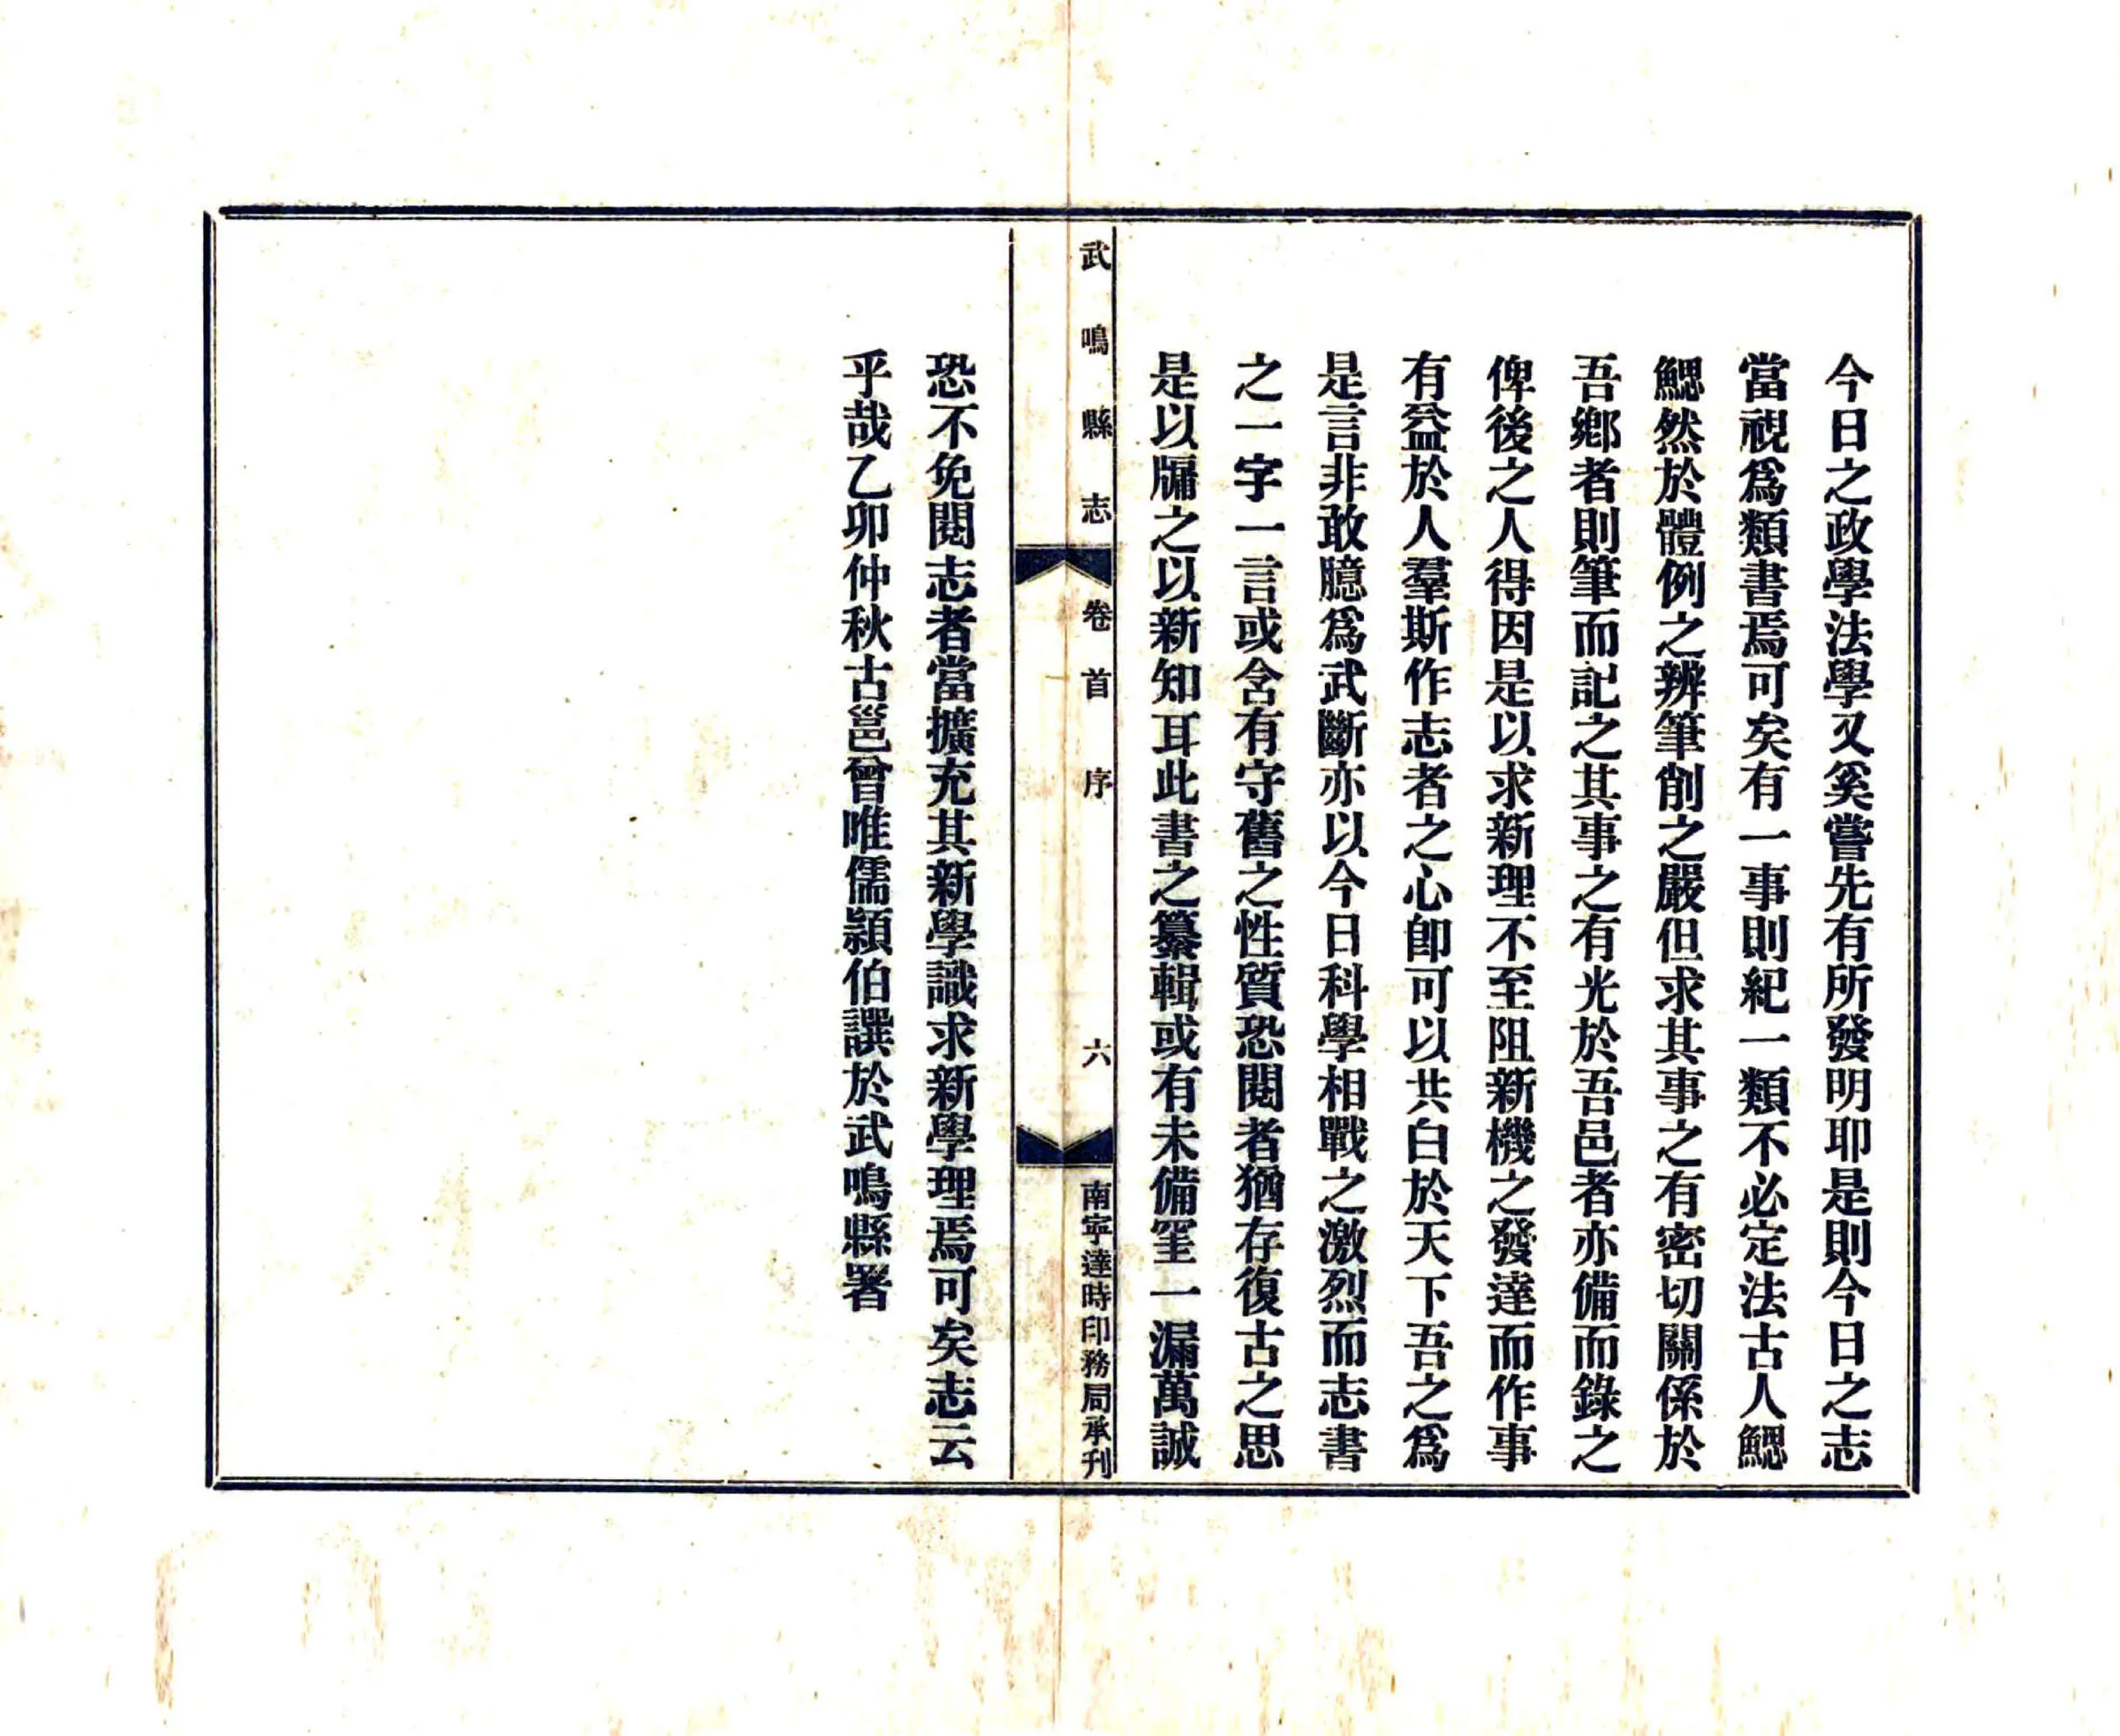 今日之政學法學又奚嘗先有所發明耶是則今日之志
當視爲類書焉可矣有一事則紀一類不必定法古人鰓
鰓然於體例之辨筆削之嚴但求其事之有密切關係於
吾鄉者則筆而記之其事之有光於吾邑者亦備而錄之
俾後之人得因是以求新理不至阻新機之發達而作事
有益於人羣斯作志者之心卽可以共白於天下吾之爲
是言非敢臆爲武斷亦以今日科學相戰之激烈而志書
之一字一言或含有守舊之性質恐閱者猶存復古之思
是以牖之以新知耳此書之纂輯或有未備罣一漏萬誠
武鳴縣志 卷首 序 六 南寧達時印務局承刊
恐不免閱志者當擴充其新學識求新學理焉可矣志云
乎哉乙卯仲秋古邕曾唯儒穎伯譔於武鳴縣署